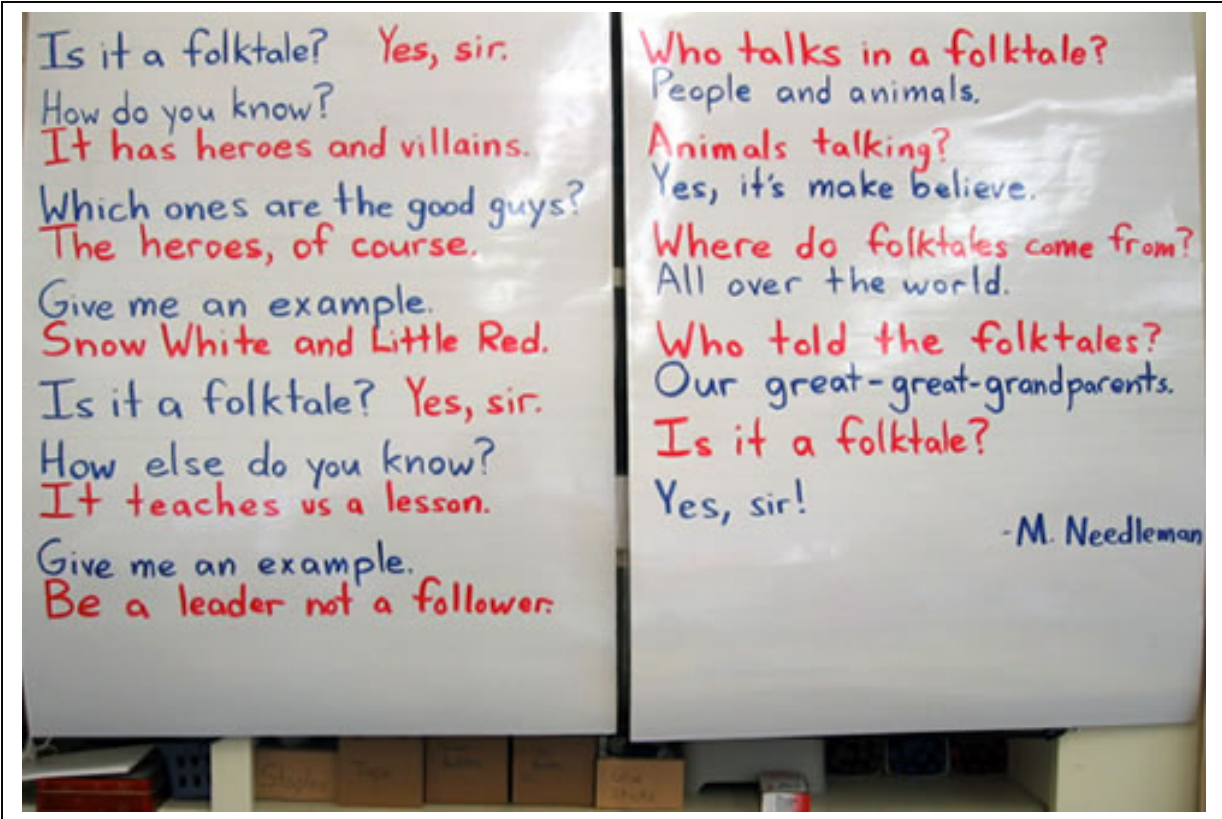 Is it a folktale? Yes, sir.
How do you know?
It has heroes and villains.
Which ones are the good guys?
The heroes, of course.
Give me an example.
Snow White and Little Red.
Is it a folktale? Yes, sir.
How else do you know?
It teaches us a lesson.
Give me an example.
Be a leader not a follower.
Who talks in a folktale?
People and animals.
Animals talking?
Yes, it's make believe.
Where do folktales come from?
All over the world.
Who told the folktales?
Our great-great-grandparents.
Is it a folktale?
Yes, sir!
-M. Needleman
Staples
Tape